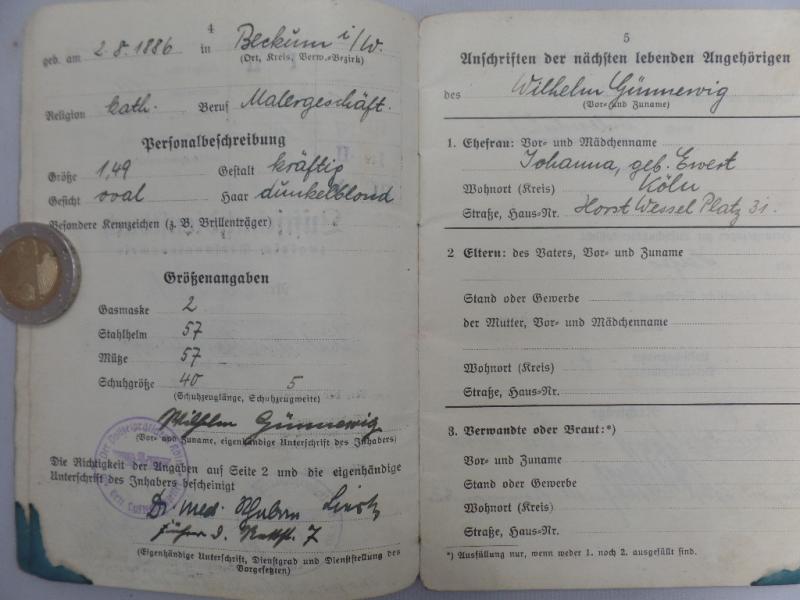 4
geb. am 2.8.1886 in Beckum i/W.
(Ort, Kreis, Verw.-Bezirk)
Religion kath. Beruf Malergeschäft.
Personalbeschreibung
Größe 1,49 Gestalt kräftig
Gesicht oval Haar dunkelblond
Besondere Kennzeichen (z. B. Brillenträger)
Größenangaben
Gasmaske 2
Stahlhelm 57
Mütze 57
Schuhgröße 40 5
(Schuhzeuglänge, Schuhzeugweite)
Wilhelm Günnewig
(Vor- und Zuname, eigenhändige Unterschrift des Inhabers)
Die Richtigkeit der Angaben auf Seite 2 und die eigenhändige
Unterschrift des Inhabers bescheinigt
Dr. med.
7
(Eigenhändige Unterschrift, Dienstgrad und Dienststellung des
Vorgesetzten)
5
Anschriften der nächsten lebenden Angehörigen
des Wilhelm Günnewig
(Vor- und Zuname)
1. Ehefrau: Vor- und Mädchenname
Johanna, geb. Ewert
Wohnort (Kreis) Köln
Straße, Haus-Nr. Horst Wessel Platz 31.
2 Eltern: des Vaters, Vor- und Zuname
Stand oder Gewerbe
der Mutter, Vor- und Mädchenname
Wohnort (Kreis)
Straße, Haus-Nr.
3. Verwandte oder Braut:*)
Vor- und Zuname
Stand oder Gewerbe
Wohnort (Kreis)
Straße, Haus-Nr.
*) Ausfüllung nur, wenn weder 1. noch 2. ausgefüllt sind.